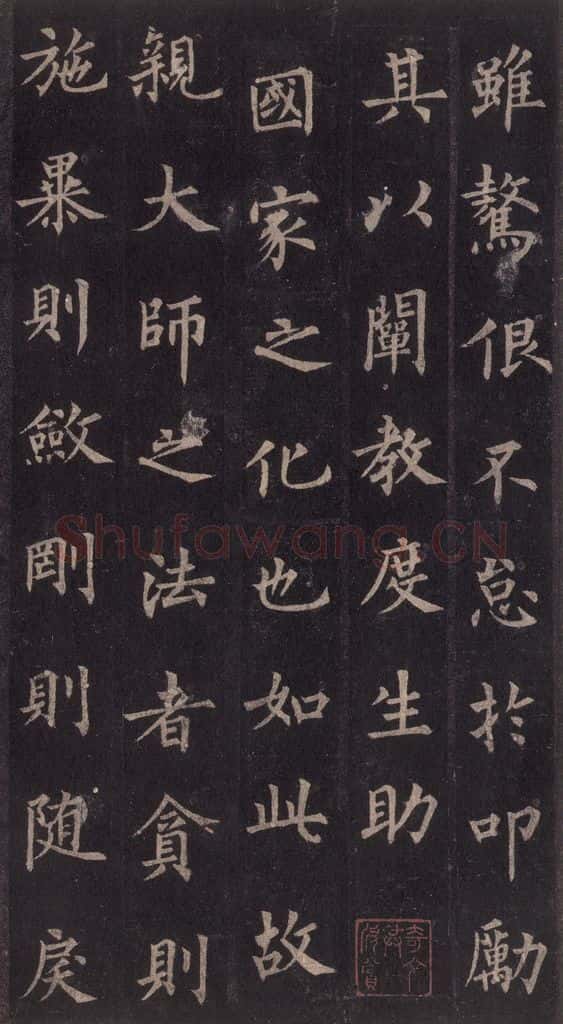 雖驁佷不怠於叩勵
其以闡教度生助
國家之化也如此故
親大師之法者貪則
施暴則斂剛則随戾
Shufawang.CN